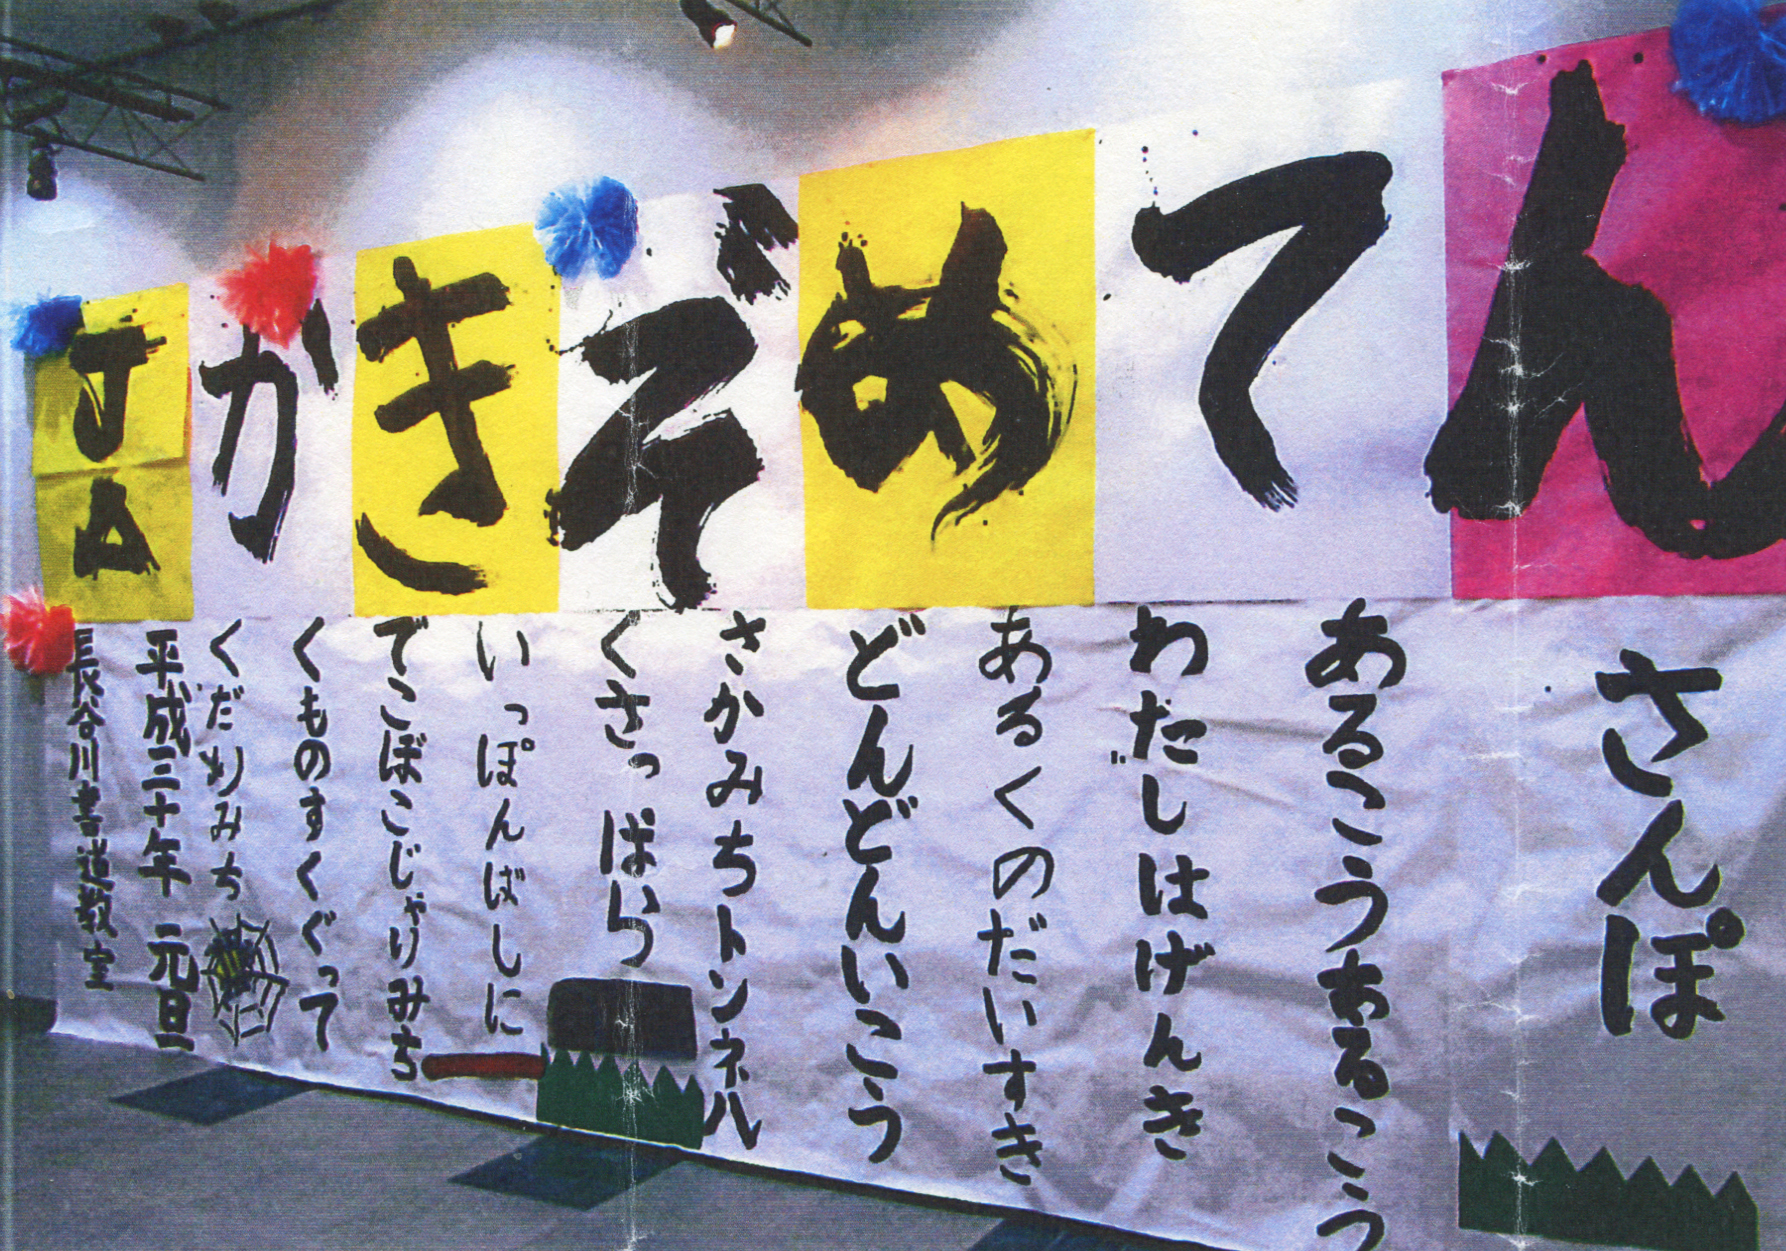 JAかきぞめてん
さんぽ
あるこうあるこう
わたしはげんき
あるくのだいすき
どんどんいこう
さかみちトンネル
くさっぱら
いっぽんばしに
でこぼこじゃりみち
くものすくぐって
くだりみち
平成三十年 元旦
長谷川書道教室